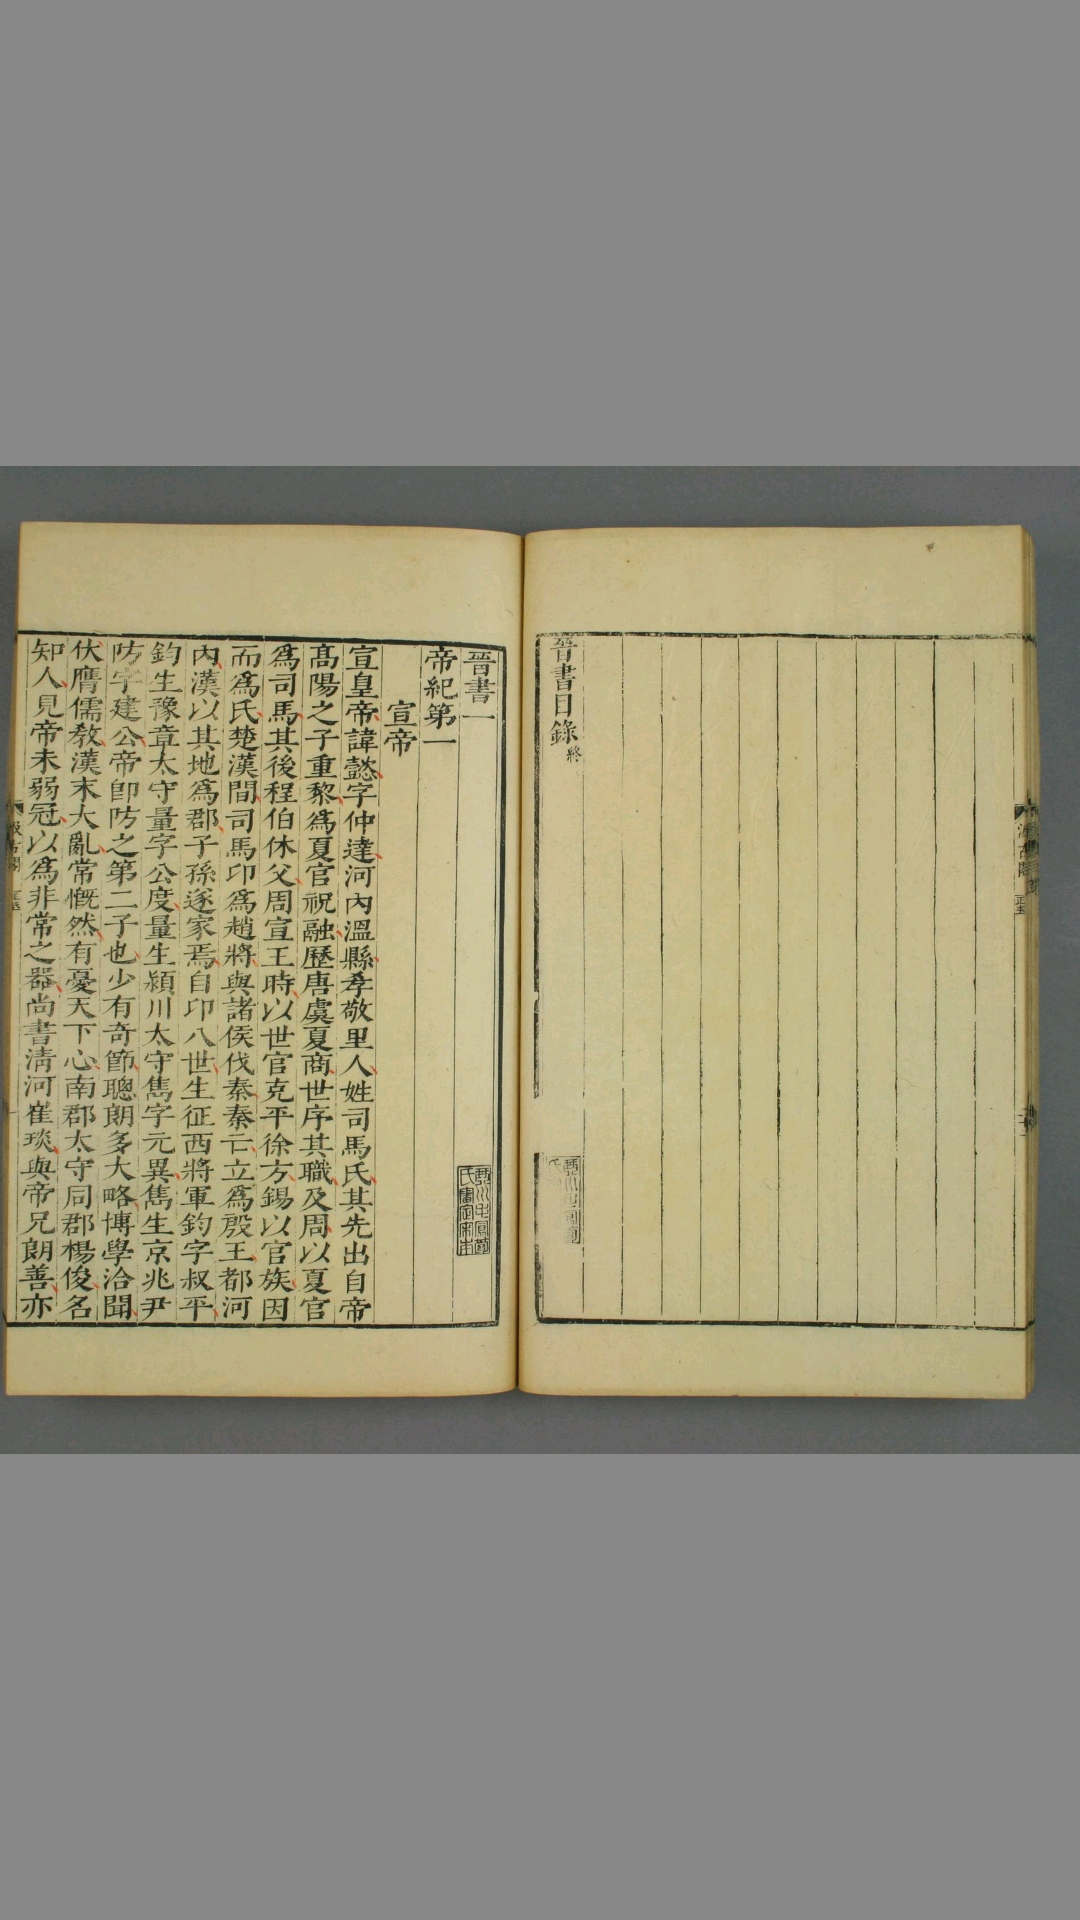 晉書目錄終
晉書一
帝紀第一
宣帝
宣皇帝諱懿字仲達河內溫縣孝敬里人姓司馬氏其先出自帝
高陽之子重黎爲夏官祝融歷唐虞夏商世序其職及周以夏官
爲司馬其後程伯休父周宣王時以世官克平徐方錫以官族因
而爲氏楚漢間司馬卬爲趙將與諸侯伐秦秦亡立爲殷王都河
內漢以其地爲郡子孫遂家焉自卬八世生征西將軍鈞字叔平
鈞生豫章太守量字公度量生潁川太守雋字元異雋生京兆尹
防字建公帝卽防之第二子也少有奇節聰朗多大略博學洽聞
伏膺儒敎漢末大亂常慨然有憂天下心南郡太守同郡楊俊名
知人見帝未弱冠以爲非常之器尚書淸河崔琰與帝兄朗善亦